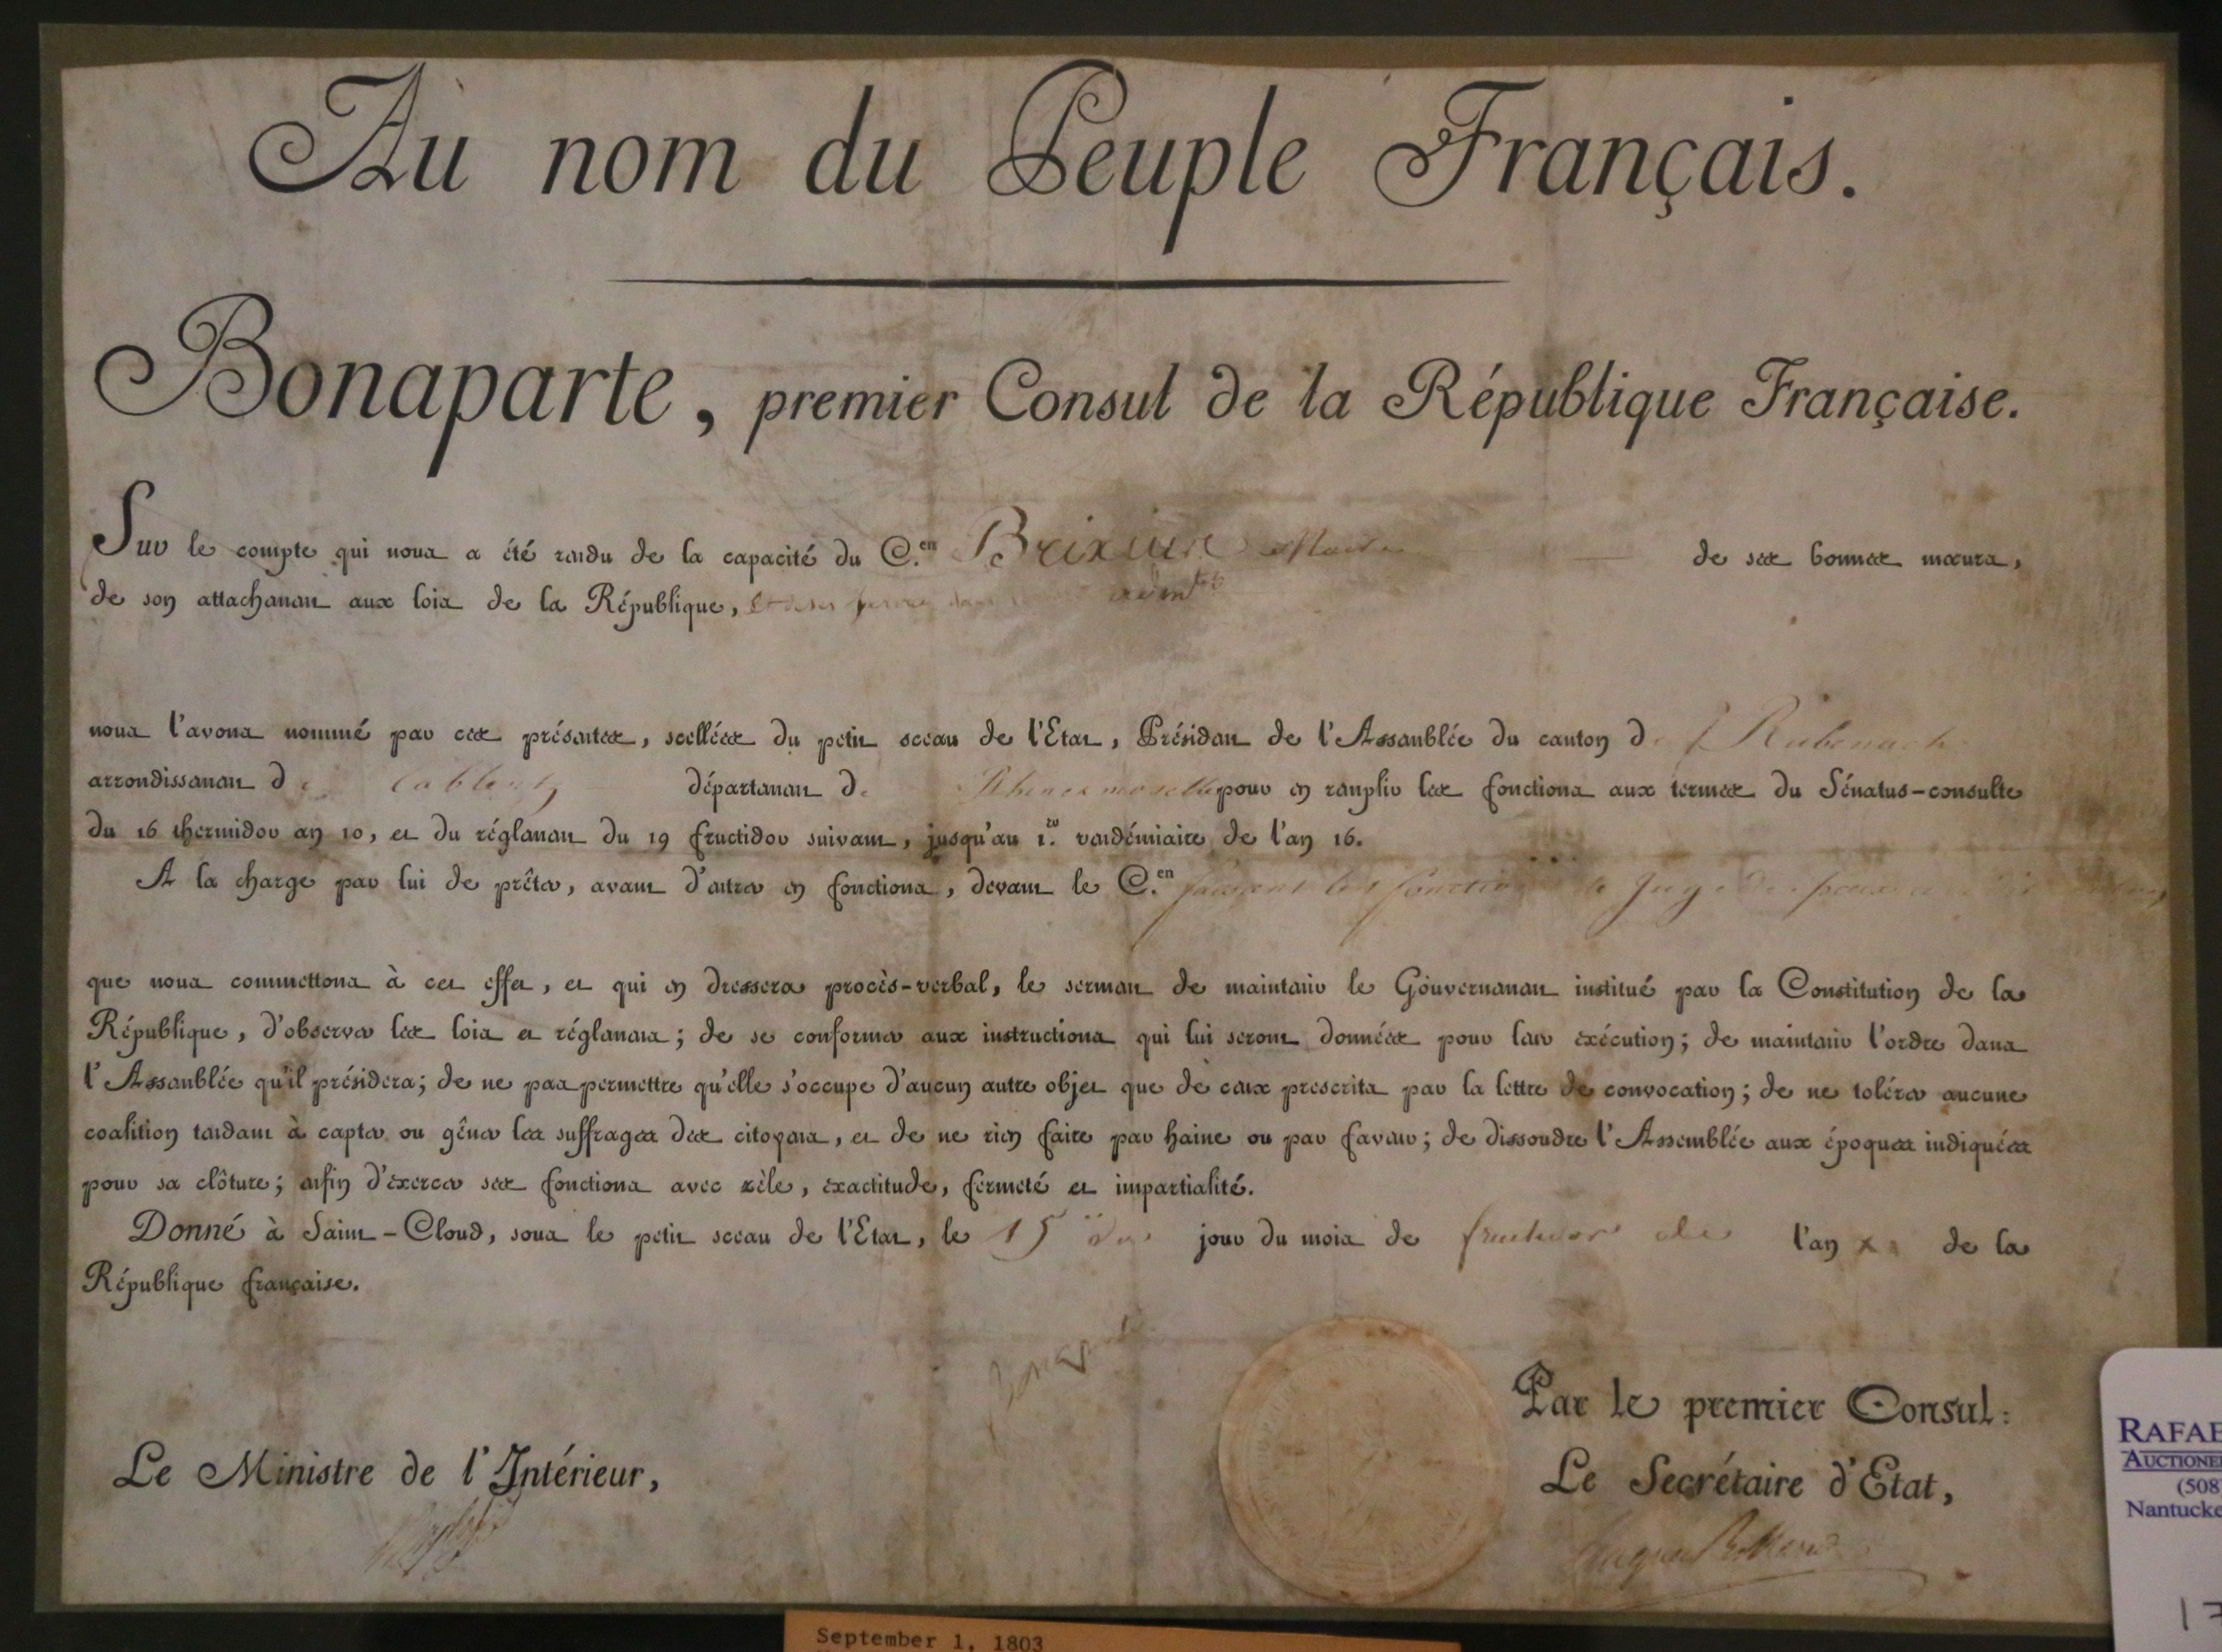 Au nom du Peuple Français.
Bonaparte, premier Consul de la République Française.
Sur le compte qui nous a été rendu de la capacité du C.en Brixius Maire de ses bonnes mœurs,
de son attachement aux lois de la République, et de ses
nous l'avons nommé par ces présentes, scellées du petit sceau de l'Etat, Président de l'Assemblée du canton de Rubenach
arrondissement de Coblentz département de Rhin et moselle pour en remplir les fonctions aux termes du Sénatus-consulte
du 16 thermidor an 10, et du réglement du 19 fructidor suivant, jusqu'au 1.er vendémiaire de l'an 16.
A la charge par lui de prêter, avant d'entrer en fonctions, devant le C.en faisant les fonctions de Juge de paix
que nous commettons à cet effet, et qui en dressera procès-verbal, le serment de maintenir le Gouvernement institué par la Constitution de la
République, d'observer les lois et réglemens; de se conformer aux instructions qui lui seront données pour leur exécution; de maintenir l'ordre dans
l'Assemblée qu'il présidera; de ne pas permettre qu'elle s'occupe d'aucun autre objet que de ceux prescrits par la lettre de convocation; de ne tolérer aucune
coalition tendant à capter ou gêner les suffrages des citoyens, et de ne rien faire par haine ou par faveur; de dissoudre l'Assemblée aux époques indiquées
pour sa clôture; enfin d'exercer ses fonctions avec zèle, exactitude, fermeté et impartialité.
Donné à Saint-Cloud, sous le petit sceau de l'Etat, le 15 jour du mois de fructidor de l'an XI de la
République française.
Par le premier Consul:
Le Ministre de l'Intérieur,
Le Secrétaire d'Etat,
Hugues B Maret
RAFAE
AUCTIONE
(508
Nantucke
17
September 1, 1803